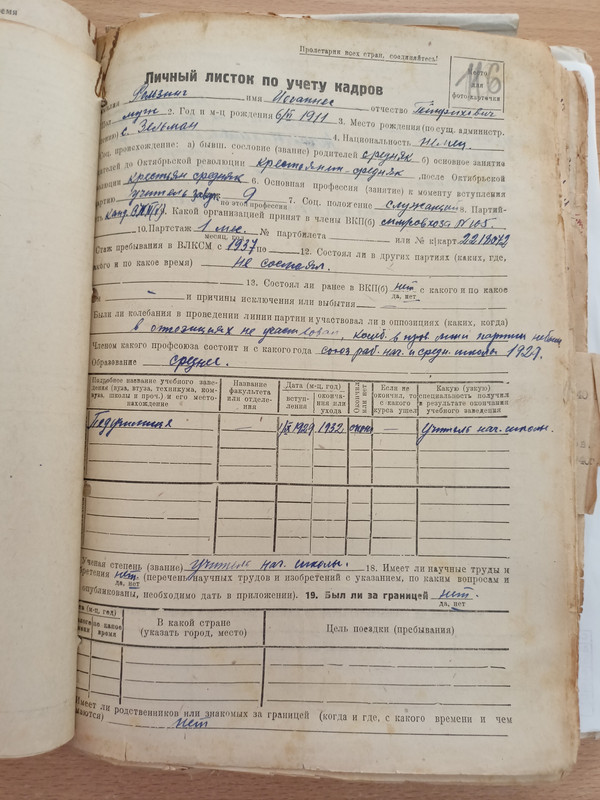 ремя
Пролетарии всех стран, соединяйтесь!
116
Место
или
фотокарточки
Личный листок по учету кадров
имя Иоганнес отчество Генрихович
муж 2. Год и м-ц рождения 6/II 1911 3. Место рождения (по сущ. администр.
с. Зельман 4. Национальность Немец
Соц. происхождение: а) бывш. сословие (звание) родителей средняк б) основное занятие
родителей до Октябрьской революции крестьянин-средняк, после Октябрьской
крестьян средняк 6. Основная профессия (занятие) к моменту вступления
учитель завуч. по этой профессии 9 7. Соц. положение служащий 8. Партий-
Канд. ВКП(б) 9. Какой организацией принят в члены ВКП(б)
10. Партстаж 1 мес. № партбилета или № к/карт. 2212012
месяц, год
Стаж пребывания в ВЛКСМ с 1937 по 12. Состоял ли в других партиях (каких, где,
какого и по какое время) Не состоял.
13. Состоял ли ранее в ВКП(б) нет с какого и по какое
да, нет
— и причины исключения или выбытия —
Были ли колебания в проведении линии партии и участвовал ли в оппозициях (каких, когда)
в оппозициях не участвовал, колеб. в пров. линии партии небыло
Членом какого профсоюза состоит и с какого года союз раб. нач. и средн. школы 1929.
Образование среднее.
Подробное название учебного заве-
дения (вуза, втуза, техникума, ком-
вуза, школы и проч.) и его место-
нахождение
Название
факультета
или отделе-
ния
Дата (м-ц, год)
вступ-
ления
оконча-
ния или
ухода
Окончил
или нет
Если не
окончил, то
с какого
курса ушел
Какую (узкую)
специальность получил
в результате окончания
учебного заведения
— 1/IX 1929 1932 — учитель нач. школы.
Ученая степень (звание) учитель нач. школы. 18. Имеет ли научные труды и
изобретения нет. (перечень научных трудов и изобретений с указанием, по каким вопросам и
да, нет
опубликованы, необходимо дать в приложении). 19. Был ли за границей нет.
да, нет
(м-ц, год)
какое
время
В какой стране
(указать город, место)
Цель поездки (пребывания)
Имеет ли родственников или знакомых за границей (когда и где, с какого времени и чем
нет